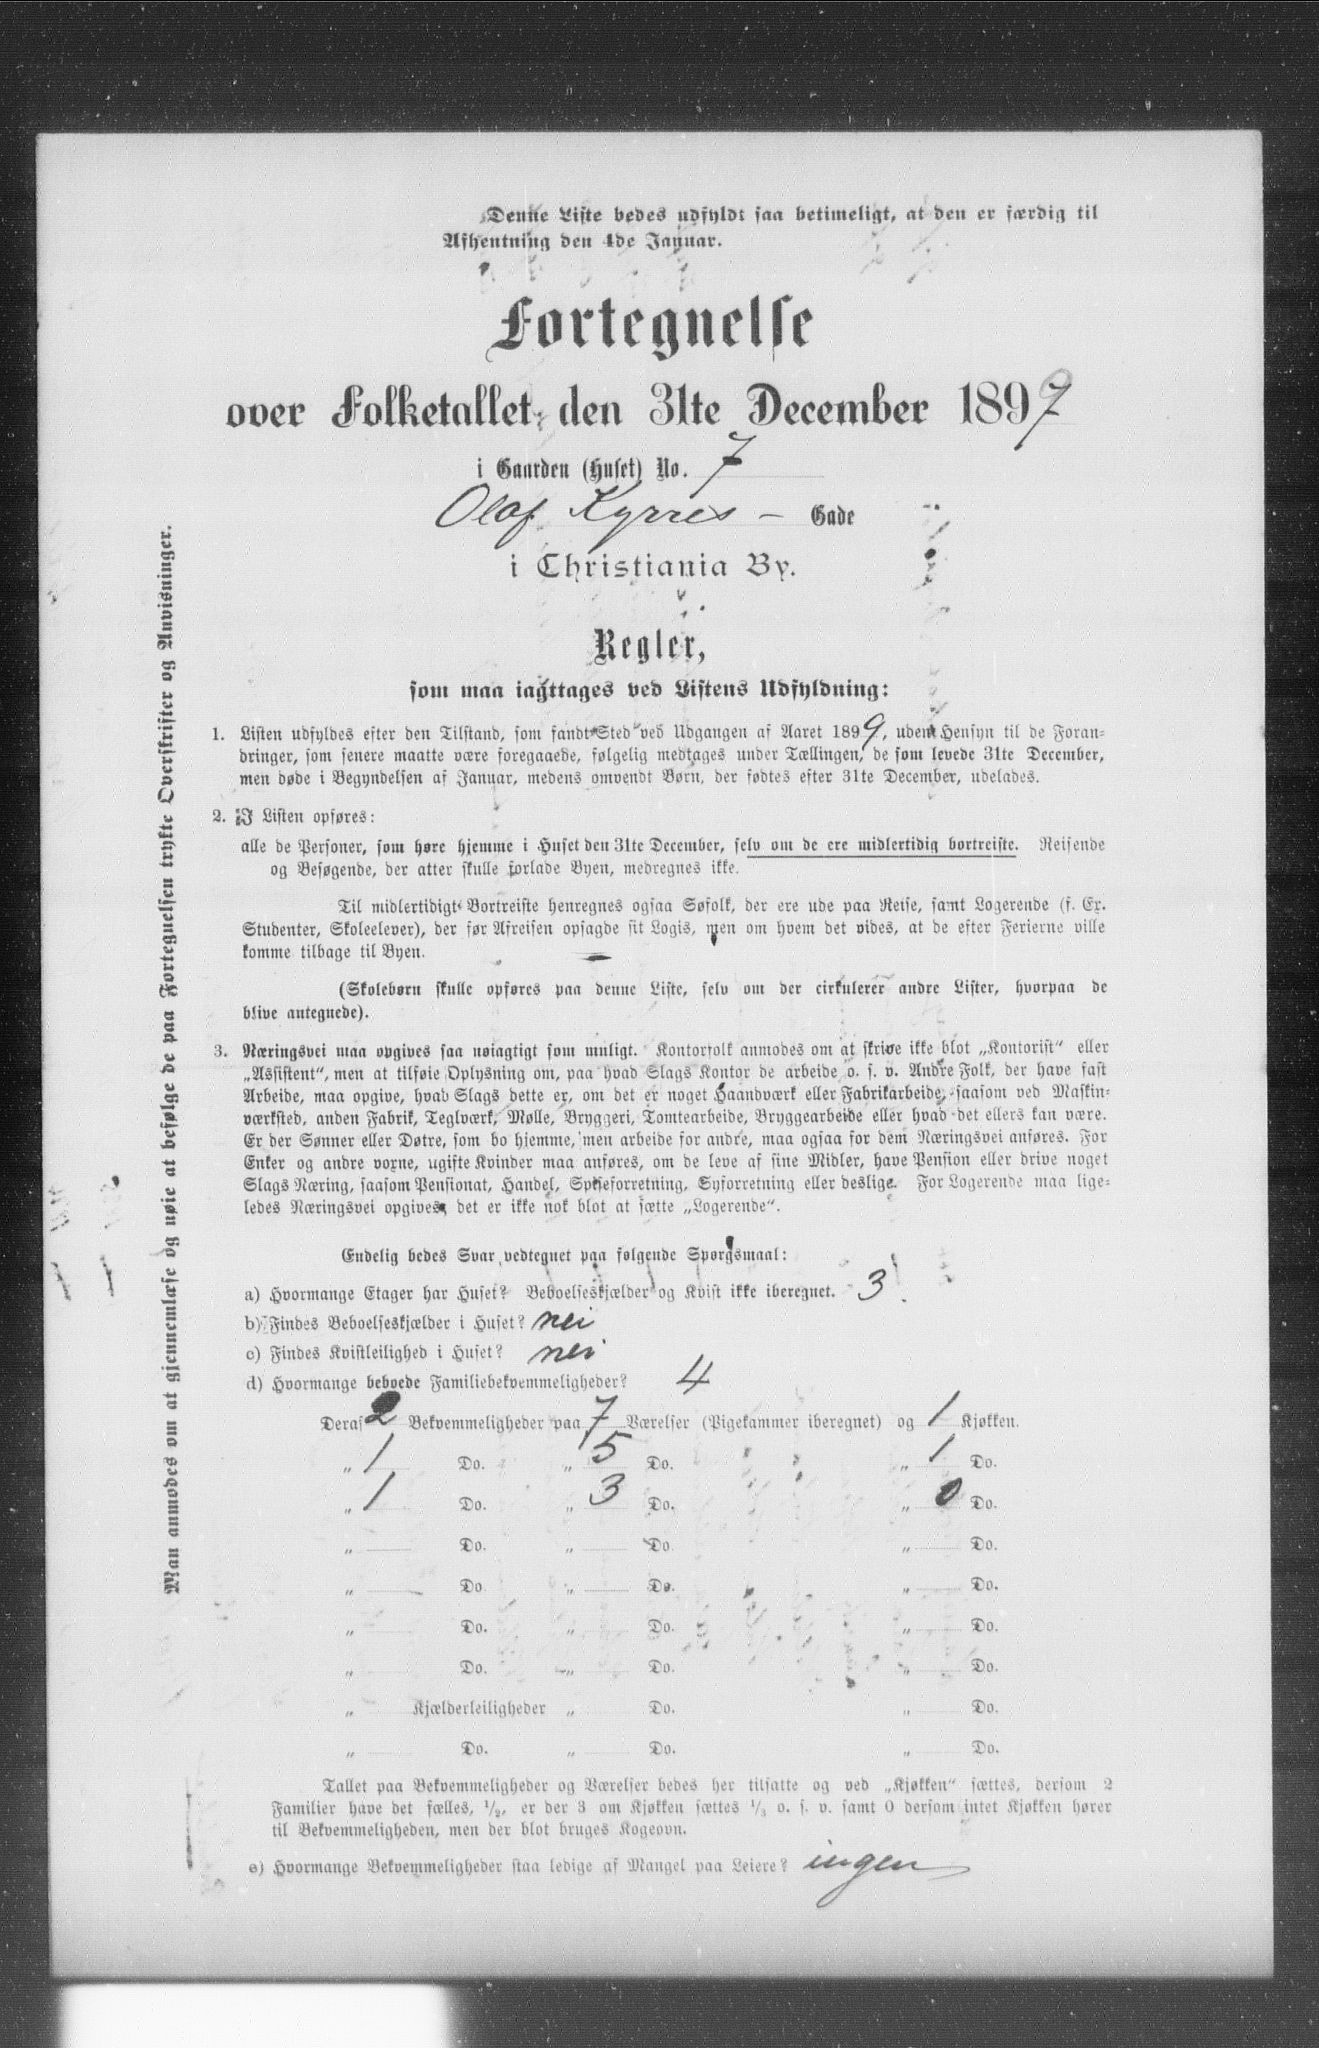 Denne Liste bedes udfyldt saa betimeligt, at den er færdig til
Afhentning den 4de Januar.
Fortegnelse
over Folketallet den 31te December 1899
i Gaarden (Huset) No. 7
Olaf Kyrres – Gade
i Christiania By.
Regler,
som maa iagttages ved Listens Udfyldning:
1. Listen udfyldes efter den Tilstand, som fandt Sted ved Udgangen af Aaret 1899, uden Hensyn til de Foran-
dringer, som senere maatte være foregaaede, følgelig medtages under Tællingen, de som levede 31te December,
men døde i Begyndelsen af Januar, medens omvendt Børn, der fødtes efter 31te December, udelades.
2. I Listen opføres:
alle de Personer, som høre hjemme i Huset den 31te December, selv om de ere midlertidig bortreiste. Reisende
og Besøgende, der atter skulle forlade Byen, medregnes ikke.
Til midlertidigt Bortreiste henregnes ogsaa Søfolk, der ere ude paa Reise, samt Logerende (f. Ex.
Studenter, Skoleelever), der før Afreisen opsagde sit Logis, men om hvem det vides, at de efter Ferierne ville
komme tilbage til Byen.
(Skolebørn skulle opføres paa denne Liste, selv om der cirkulerer andre Lister, hvorpaa de
blive antegnede).
3. Næringsvei maa opgives saa nøiagtigt som muligt. Kontorfolk anmodes om at skrive ikke blot „Kontorist" eller
„Assistent", men at tilføie Oplysning om, paa hvad Slags Kontor de arbeide o. s. v. Andre Folk, der have fast
Arbeide, maa opgive, hvad Slags dette er, om det er noget Haandværk eller Fabrikarbeide, saasom ved Maskin-
værksted, anden Fabrik, Teglværk, Mølle, Bryggeri, Tomtearbeide, Bryggearbeide eller hvad det ellers kan være.
Er der Sønner eller Døtre, som bo hjemme, men arbeide for andre, maa ogsaa for dem Næringsvei anføres. For
Enker og andre voxne, ugifte Kvinder maa anføres, om de leve af sine Midler, have Pension eller drive noget
Slags Næring, saasom Pensionat, Handel, Spiseforretning, Syforretning eller deslige. For Logerende maa lige-
ledes Næringsvei opgives, det er ikke nok blot at sætte „Logerende".
Endelig bedes Svar vedtegnet paa følgende Spørgsmaal:
a) Hvormange Etager har Huset? Beboelseskjælder og Kvist ikke iberegnet. 3
b) Findes Beboelseskjælder i Huset? nei
c) Findes Kvistleilighed i Huset? nei
d) Hvormange beboede Familiebekvemmeligheder? 4
Deraf 2 Bekvemmeligheder paa 7 Værelser (Pigekammer iberegnet) og 1 Kjøkken.
„ 1 Do. „ 5 Do. „ 1 Do.
„ 1 Do. „ 3 Do. „ 0 Do.
„ Do. „ Do. „ Do.
„ Do. „ Do. „ Do.
„ Do. „ Do. „ Do.
„ Do. „ Do. „ Do.
„ Kjælderleiligheder „ Do. „ Do.
„ Do. „ Do. „ Do.
Tallet paa Bekvemmeligheder og Værelser bedes her tilsatte og ved „Kjøkken" sættes, dersom 2
Familier have det fælles, 1/2, er der 3 om Kjøkken sættes 1/3 o. s. v. samt 0 dersom intet Kjøkken hører
til Bekvemmeligheden, men der blot bruges Kogeovn.
e) Hvormange Bekvemmeligheder staa ledige af Mangel paa Leiere? ingen
Man anmodes om at gjennemlæse og nøie at befølge de paa Fortegnelsen trykte Overskrifter og Anvisninger.